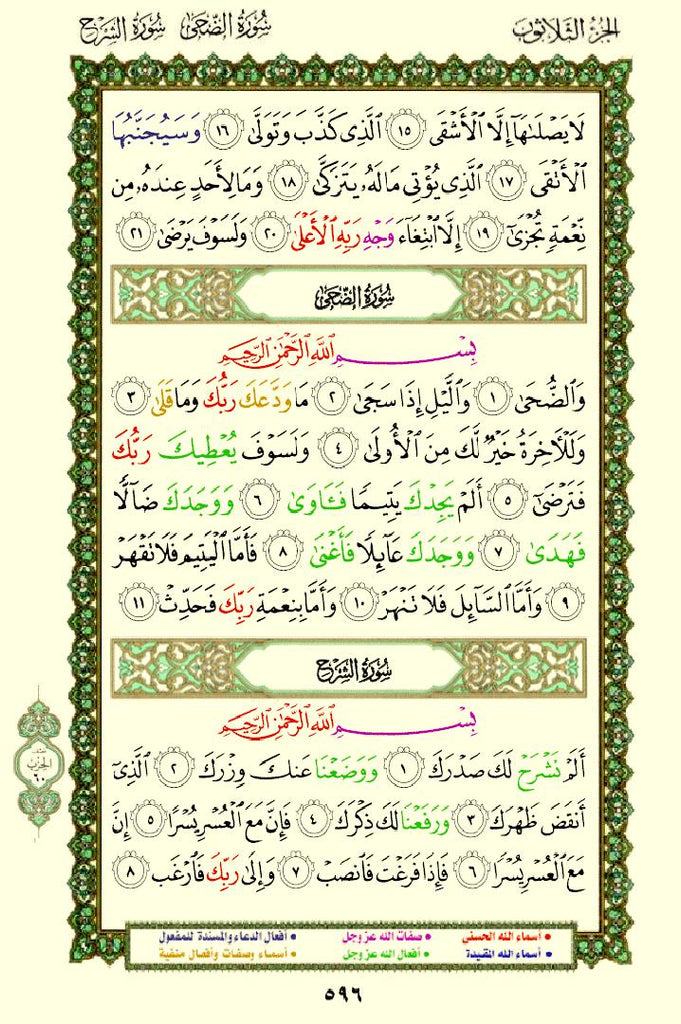 الجزء الثلاثون
سورة الضحى
سورة الشرح
لَا يَصْلَىٰهَآ إِلَّا ٱلْأَشْقَى ١٥ ٱلَّذِى كَذَّبَ وَتَوَلَّىٰ ١٦ وَسَيُجَنَّبُهَا
ٱلْأَتْقَى ١٧ ٱلَّذِى يُؤْتِى مَالَهُۥ يَتَزَكَّىٰ ١٨ وَمَا لِأَحَدٍ عِندَهُۥ مِن
نِّعْمَةٍ تُجْزَىٰٓ ١٩ إِلَّا ٱبْتِغَآءَ وَجْهِ رَبِّهِ ٱلْأَعْلَىٰ ٢٠ وَلَسَوْفَ يَرْضَىٰ ٢١
سُورَةُ الضُّحَى
بِسْمِ ٱللَّهِ ٱلرَّحْمَٰنِ ٱلرَّحِيمِ
وَٱلضُّحَىٰ ١ وَٱلَّيْلِ إِذَا سَجَىٰ ٢ مَا وَدَّعَكَ رَبُّكَ وَمَا قَلَىٰ ٣
وَلَلْأَخِرَةُ خَيْرٌ لَّكَ مِنَ ٱلْأُولَىٰ ٤ وَلَسَوْفَ يُعْطِيكَ رَبُّكَ
فَتَرْضَىٰٓ ٥ أَلَمْ يَجِدْكَ يَتِيمًا فَـَٔاوَىٰ ٦ وَوَجَدَكَ ضَآلًّا
فَهَدَىٰ ٧ وَوَجَدَكَ عَآئِلًا فَأَغْنَىٰ ٨ فَأَمَّا ٱلْيَتِيمَ فَلَا تَقْهَرْ
٩ وَأَمَّا ٱلسَّآئِلَ فَلَا تَنْهَرْ ١٠ وَأَمَّا بِنِعْمَةِ رَبِّكَ فَحَدِّثْ ١١
سُورَةُ الشَّرْحِ
بِسْمِ ٱللَّهِ ٱلرَّحْمَٰنِ ٱلرَّحِيمِ
أَلَمْ نَشْرَحْ لَكَ صَدْرَكَ ١ وَوَضَعْنَا عَنكَ وِزْرَكَ ٢ ٱلَّذِىٓ
أَنقَضَ ظَهْرَكَ ٣ وَرَفَعْنَا لَكَ ذِكْرَكَ ٤ فَإِنَّ مَعَ ٱلْعُسْرِ يُسْرًا ٥ إِنَّ
مَعَ ٱلْعُسْرِ يُسْرًا ٦ فَإِذَا فَرَغْتَ فَٱنصَبْ ٧ وَإِلَىٰ رَبِّكَ فَٱرْغَب ٨
الحزب
٦٠
• أسماء الله الحسنى • صفات الله عز وجل • أفعال الدعاء والمسندة للمفعول
• أسماء الله المقيدة • أفعال الله عز وجل • أسماء وصفات وأفعال منفية
٥٩٦